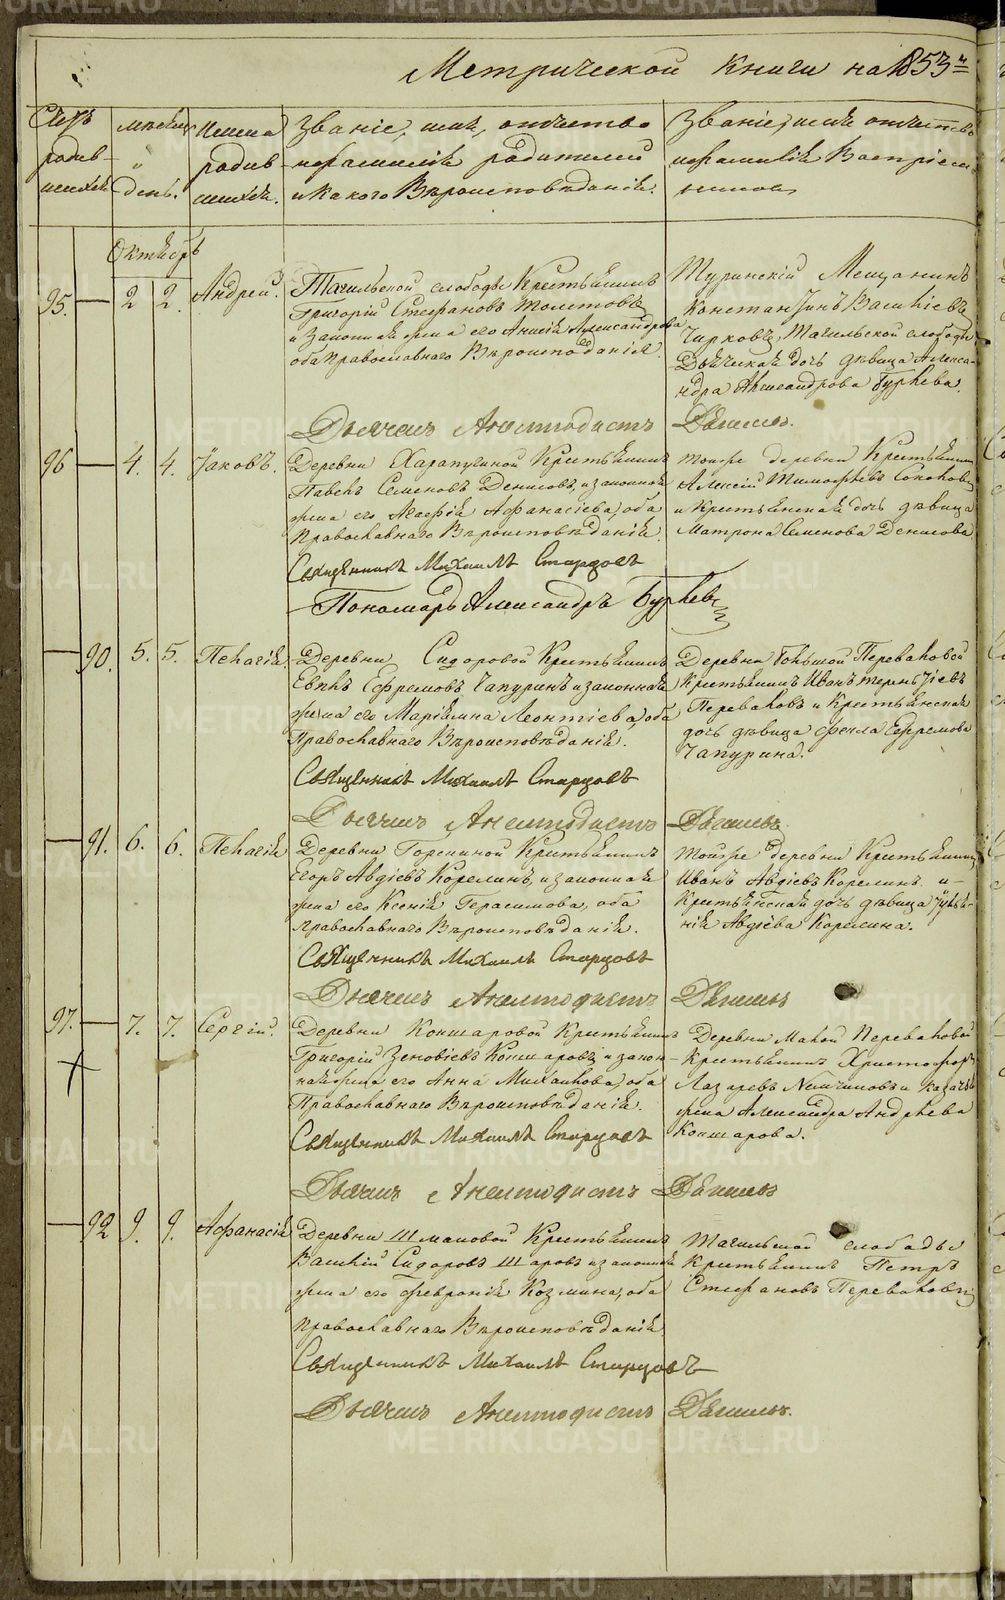 Метрической книги на 1853й
Счетъ
родив-
шихся
мѣсяцъ
"
день.
Имена
родив
шихся.
Званіе, имя, отчество
и фамилія родителей
и какого Вѣроисповѣданія.
Званіе, имя отчество
и фамилія Воспріем-
никовъ
Октябрь
95. 2 2. Андрей.
Тагильской слободы Крестьянинъ
Григорій Стефановъ
и законная жена его Анисія Александрова
оба Православнаго Вѣроисповѣданія.
Туринскій Мещанинъ
Константинъ Васильевъ
Чирковъ, Тагильской слободы
Дьяческая дочь дѣвица Алекса-
ндра Александрова Бурлева.
Дьячекъ Аполлодистъ
96 4. 4. Іаковъ.
Деревни Харапугиной Крестьянинъ
Павелъ Семеновъ Денисовъ, и законная
жена его Агафія Афанасіева, оба
Православнаго Вѣроисповѣданія.
тойже деревни Крестьянинъ
Алексѣй Тимофѣевъ
и Крестьянская дочь дѣвица
Матрона Семенова Денисова
Священникъ Михаилъ Старцовъ
Пономарь Александръ Бурлевъ
90. 5. 5. Пелагія
Деревни Сидоровой Крестьянинъ
Ефремовъ Чапуринъ и законная
жена его Маріямна Леонтіева, оба
Православнаго Вѣроисповѣданія.
Деревни Большой Переваловой
Крестьянинъ Иванъ Терентіевъ
Переваловъ и Крестьянская
дочь дѣвица Фекла Ефремова
Чапурина.
Священникъ Михаилъ Старцовъ
Дьячекъ
91. 6. 6. Пелагія
Деревни Горскиной Крестьянинъ
Егоръ Авдіевъ Корелинъ, и законная
жена его Ксенія Герасимова, оба
Православнаго Вѣроисповѣданія.
тойже деревни Крестьянинъ
Иванъ Авдіевъ Корелинъ и
Крестьянская дочь дѣвица Іулія-
нія Авдіева Корелина.
Священникъ Михаилъ Старцовъ
Дьячекъ
97. 7. 7. Сергій.
Деревни Кошкаровой Крестьянинъ
Григорій Зеновіевъ и закон-
ная жена его Анна Михайлова, оба
Православнаго Вѣроисповѣданія.
Деревни Малой Переваловой
Крестьянинъ Христофоръ
Лазаревъ и казачья
жена Александра Андрѣева
Священникъ Михаилъ Старцовъ
Дьячекъ
92 9. 9. Афанасія
Деревни Шмаковой Крестьянинъ
Василій Сидоровъ Шаровъ и законная
жена его Февронія Козмина, оба
Православнаго Вѣроисповѣданія
Тагильской слободы
Крестьянинъ Петръ
Стефановъ Переваловъ
Священникъ Михаилъ Старцовъ
Дьячекъ
METRIKI.GASO-URAL.RU